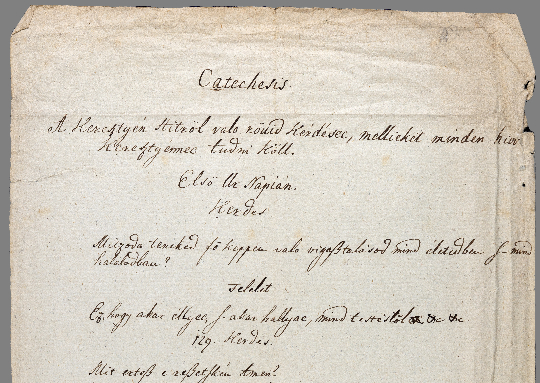 Catechesis.
A Keresztyén Hitről valo rövid Kérdésec, mellieket minden hiw
Keresztyennec tudni köll.
Elsö Ur Napián.
Kerdes
Miczoda teneked fö keppen valo vigasztalásod mind életedben s- mind
halálodban?
Felelet
Ez, hogy akar ellyec, s- akar hallyac, mind testestöl
129. Kerdes.
Mit ertesz e Amen?